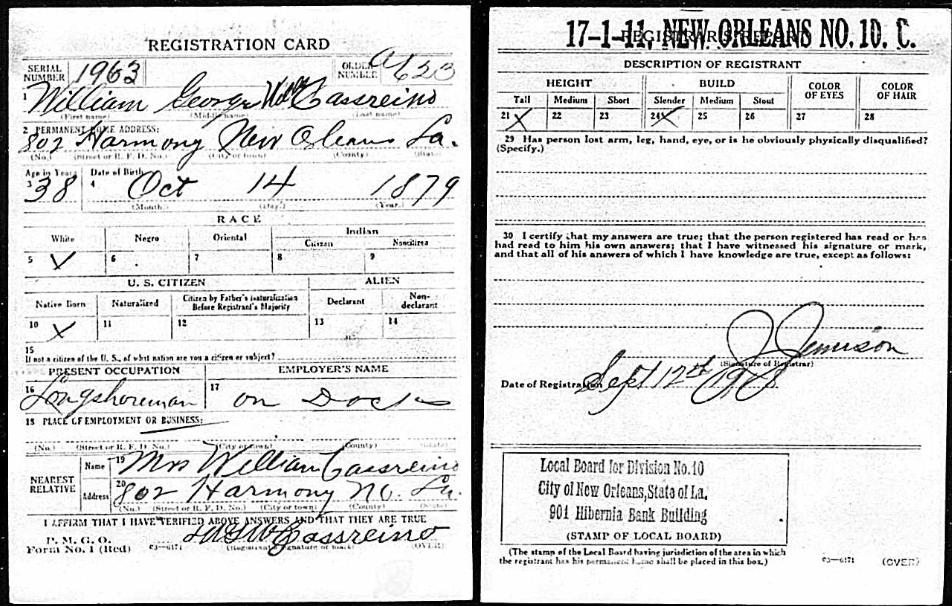 REGISTRATION CARD
SERIAL NUMBER 1963 ORDER NUMBER A 623
1 William George Cassreino
(First name) (Middle name) (Last name)
2 PERMANENT HOME ADDRESS:
802 Harmony New Orleans La.
(No.) (Street or R. F. D. No.) (City or town) (County) (State)
Age in Years Date of Birth
3 38 4 Oct 14 1879
(Month.) (Day.) (Year.)
RACE
White Negro Oriental Indian
Citizen Noncitizen
5 ✓ 6 7 8 9
U. S. CITIZEN ALIEN
Native Born Naturalized Citizen by Father's Naturalization Before Registrant's Majority Declarant Non-declarant
10 X 11 12 13 14
15
If not a citizen of the U. S., of what nation are you a citizen or subject?
PRESENT OCCUPATION EMPLOYER'S NAME
16 Longshoreman 17 on Docks
18 PLACE OF EMPLOYMENT OR BUSINESS:
(No.) (Street or R. F. D. No.) (City or town) (County) (State)
NEAREST RELATIVE
Name 19 Mrs William Cassreino
Address 20 802 Harmony N.O. La.
(No.) (Street or R. F. D. No.) (City or town) (County) (State)
I AFFIRM THAT I HAVE VERIFIED ABOVE ANSWERS AND THAT THEY ARE TRUE
P. M. G. O.
Form No. 1 (Red) 03-6171 Cassreino
(Registrant's signature or mark) (OVER)
17-1-11, NEW ORLEANS NO. 10. C.
REGISTRAR'S REPORT
DESCRIPTION OF REGISTRANT
HEIGHT BUILD COLOR OF EYES COLOR OF HAIR
Tall Medium Short Slender Medium Stout
21 X 22 23 24 X 25 26 27 28
29 Has person lost arm, leg, hand, eye, or is he obviously physically disqualified?
(Specify.)
30 I certify that my answers are true; that the person registered has read or has
had read to him his own answers; that I have witnessed his signature or mark,
and that all of his answers of which I have knowledge are true, except as follows:
J Jemison
(Signature of Registrar)
Date of Registration Sept 12th 1918
Local Board for Division No. 10
City of New Orleans, State of La.
901 Hibernia Bank Building
(STAMP OF LOCAL BOARD)
(The stamp of the Local Board having jurisdiction of the area in which
the registrant has his permanent home shall be placed in this box.)
03-6171 (OVER)